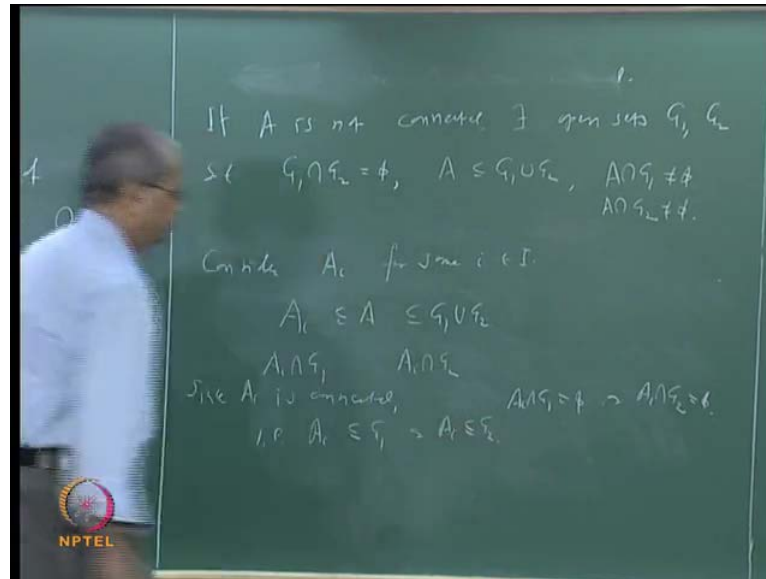 If A is not connected, ∃ open sets G₁, G₂
st G₁∩G₂ = ϕ, A ⊆ G₁∪G₂, A∩G₁ ≠ ϕ
A∩G₂ ≠ ϕ.
Consider Aᵢ for some i ∈ I.
Aᵢ ⊆ A ⊆ G₁∪G₂
Aᵢ∩G₁ Aᵢ∩G₂
Since Aᵢ is connected, Aᵢ∩G₁ = ϕ or Aᵢ∩G₂ = ϕ.
i.e. Aᵢ ⊆ G₁ or Aᵢ ⊆ G₂.
NPTEL